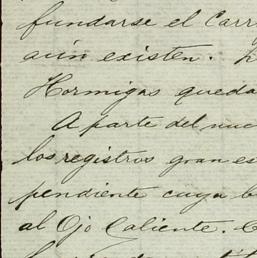 fundarse el Carr
aún existen.
Hormigas queda
A parte del nue
los registros gran es
pendiente cuya b
al Ojo Caliente. C